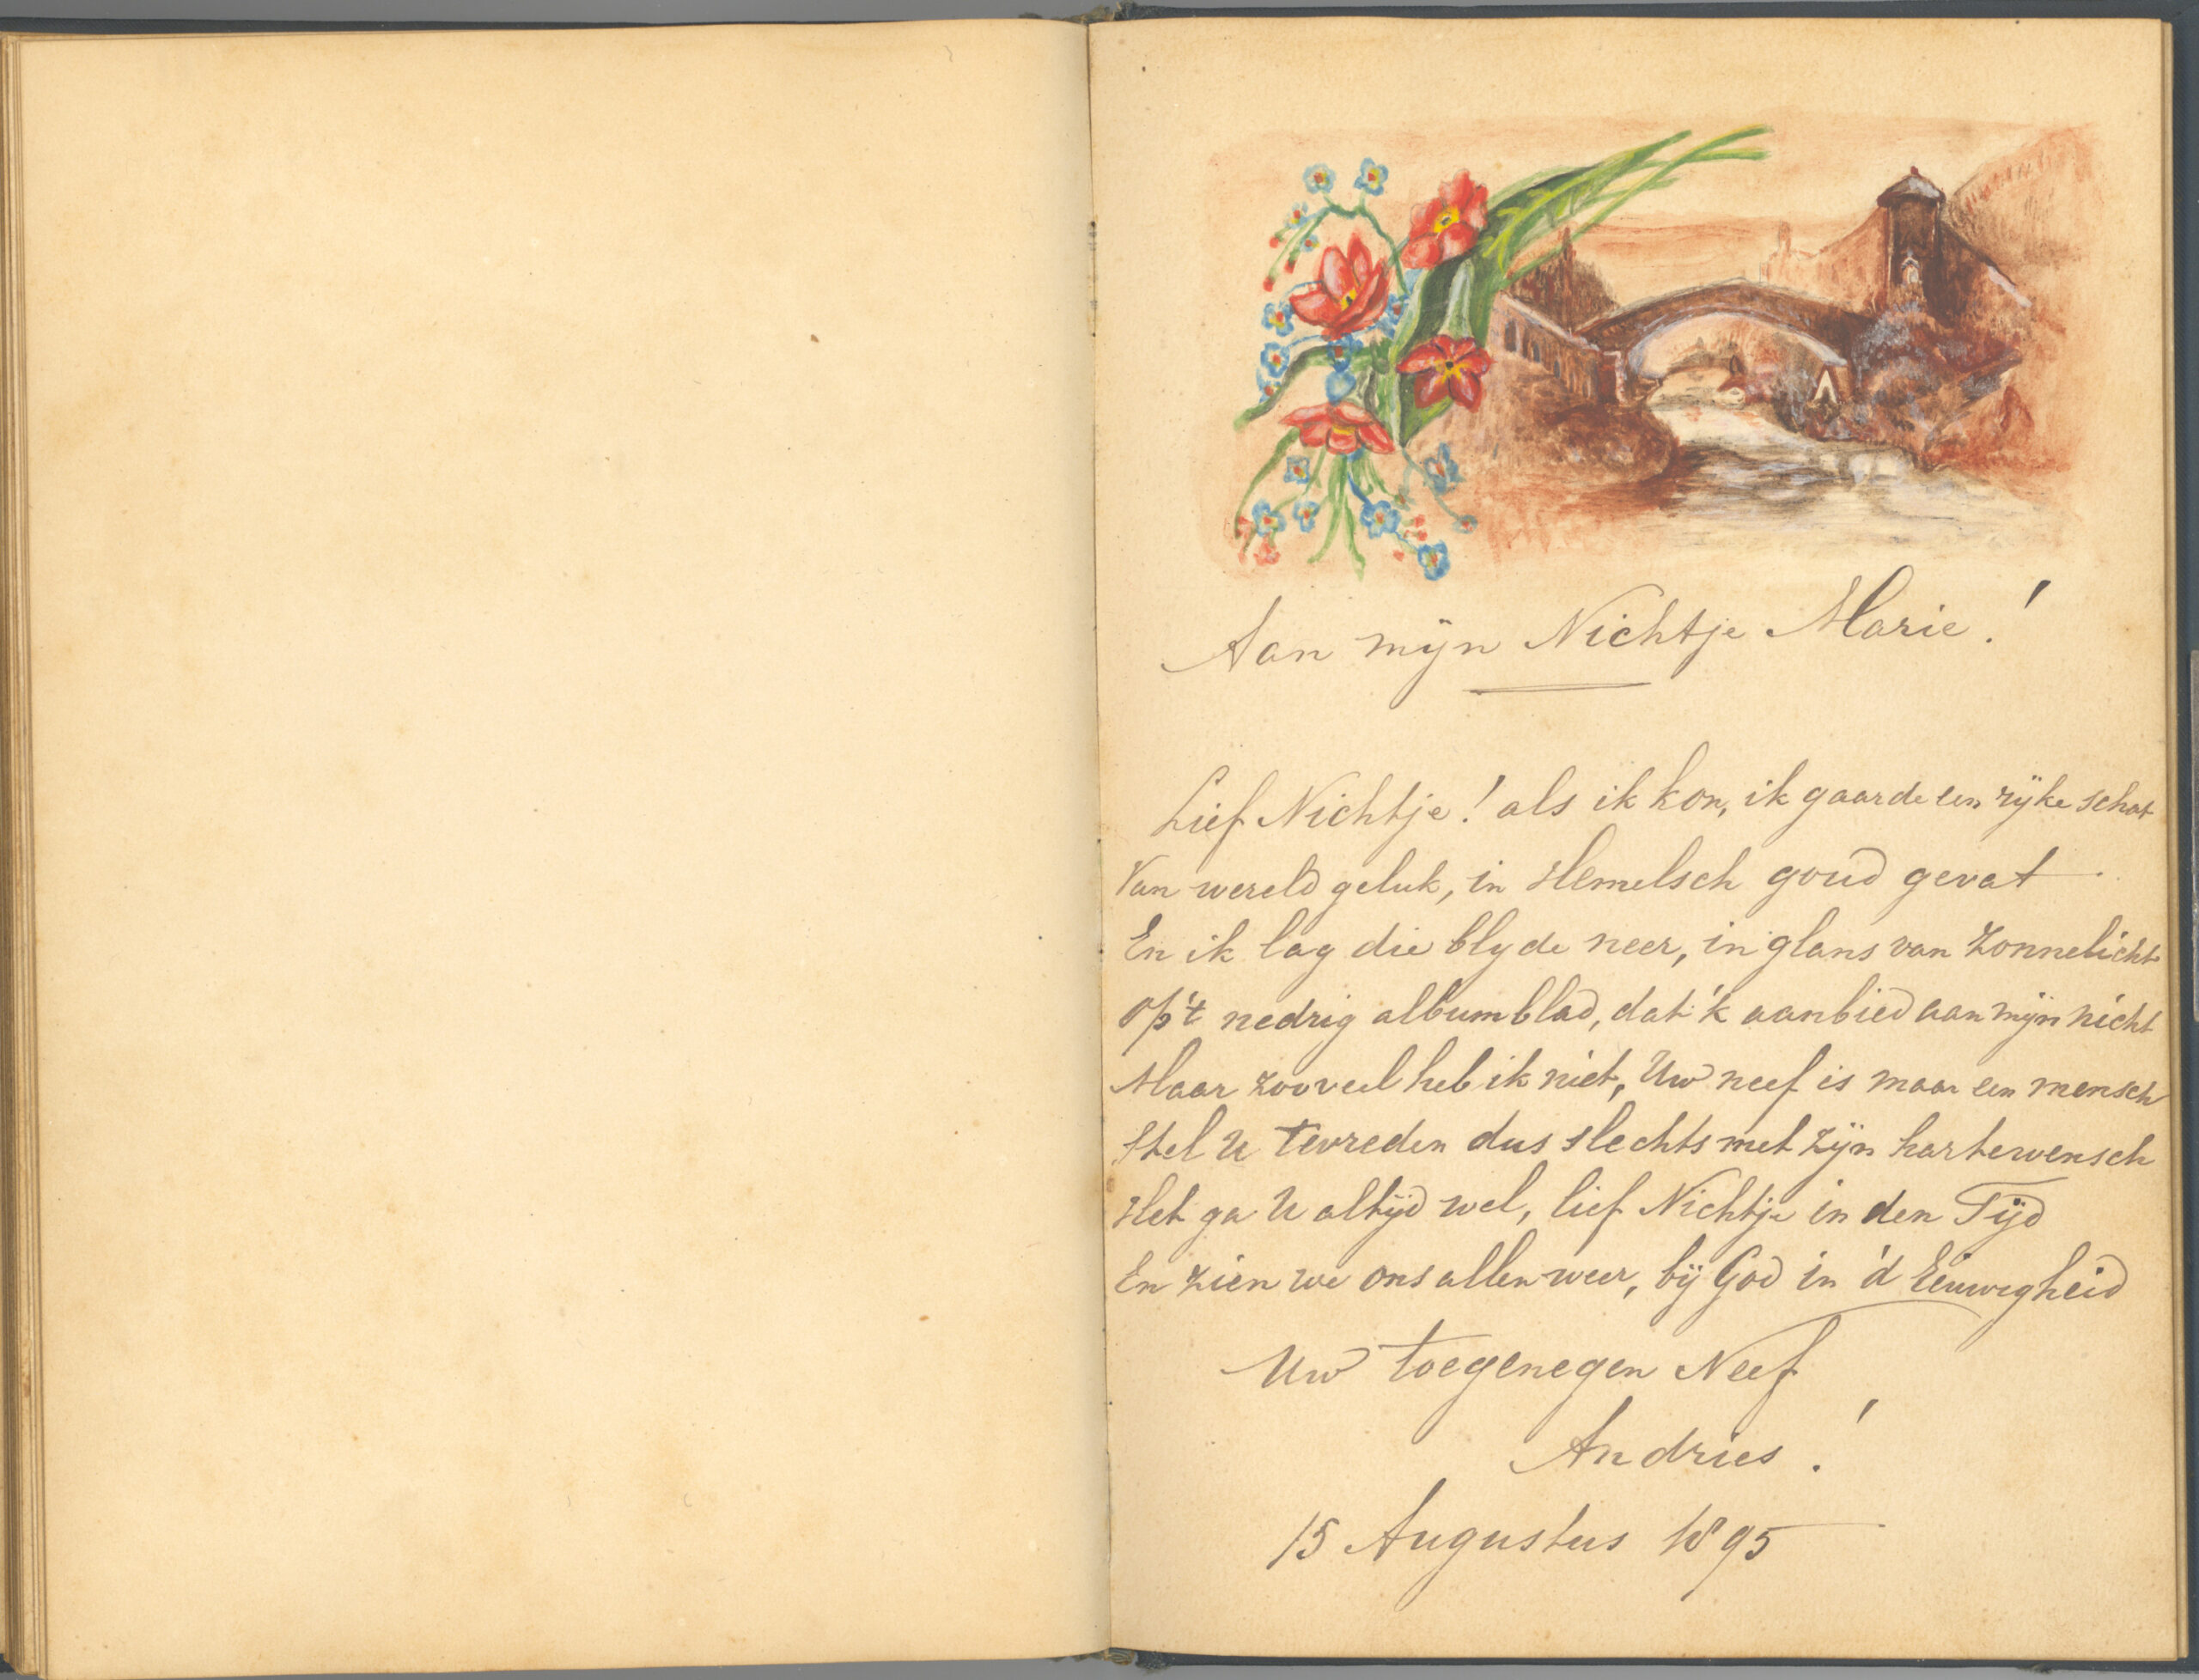 Aan mijn Nichtje Marie!
Lief Nichtje! als ik kon, ik gaarde een rijke schat
Van wereld geluk, in Hemelsch goud gevat
En ik lag die blyde neer, in glans van zonnelicht
Op 't nedrig albumblad, dat 'k aanbied aan mijn nicht
Maar zooveel heb ik niet, Uw neef is maar een mensch
Stel U tevreden dus slechts met zijn hartewensch
Het ga U altijd wel, lief Nichtje in den Tijd
En zien we ons allen weer, bij God in 'd Eeuwigheid
Uw toegenegen Neef
Andries!
15 Augustus 1895